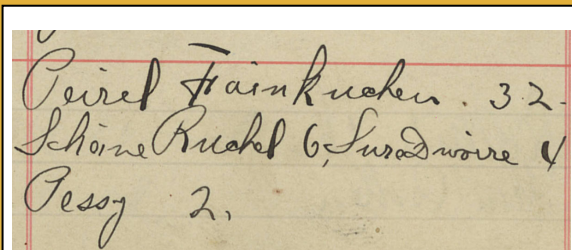 Peirel Fainkuchen. 32-
Schöine Ruchel 6, Sura Dwoire 4
Pessy 2,